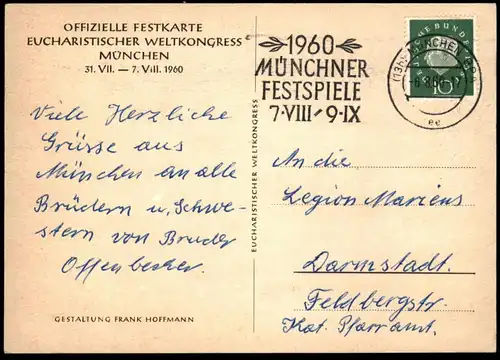 OFFIZIELLE FESTKARTE
EUCHARISTISCHER WELTKONGRESS
MÜNCHEN
31. VII. — 7. VIII. 1960
Viele Herzliche
Grüsse aus
München an alle
Brüdern u, Schwe-
stern von Bruder
Offenbecher.
GESTALTUNG FRANK HOFFMANN
EUCHARISTISCHER WELTKONGRESS
1960
MÜNCHNER
FESTSPIELE
7·VIII-9·IX
(13b) MÜNCHEN
ee
10
An die
Legion Mariens
Darmstadt.
Feldbergstr.
Kat. Pfarramt.